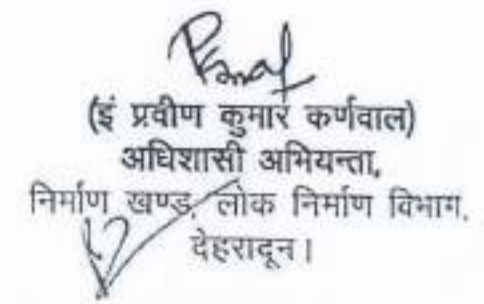 (इं प्रवीण कुमार कर्णवाल)
अधिशासी अभियन्ता,
निर्माण खण्ड, लोक निर्माण विभाग,
देहरादून।